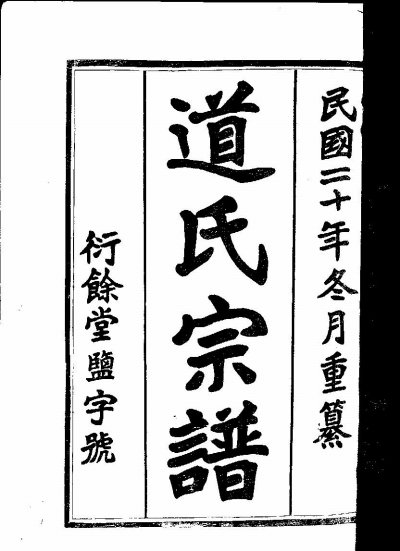 民國二十年冬月重纂
道氏宗譜
衍餘堂鹽字號